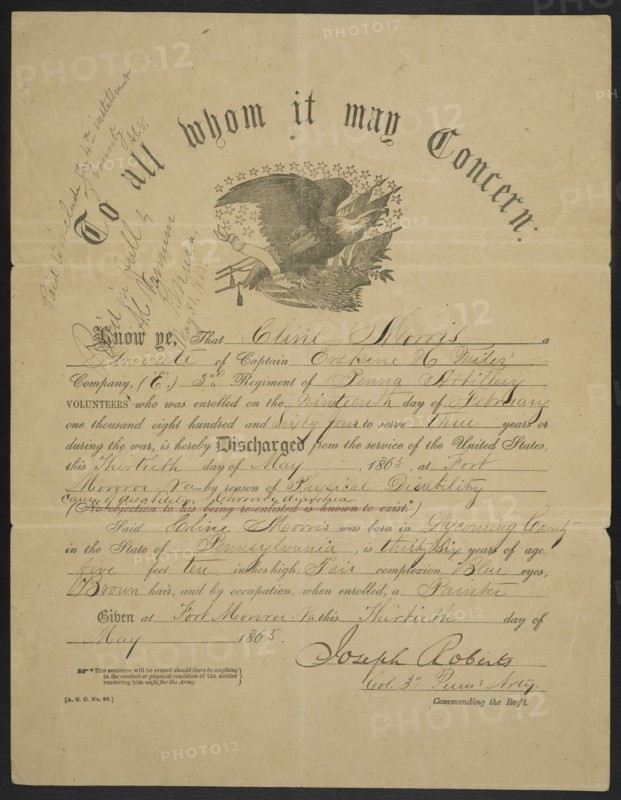 To all whom it may Concern:
Paid to include the 4th installment
of bounty
Paid in full
May 31, 1865
Know ye, That Cline Morris a
Private of Captain Erskine H
Company, (E,) 3rd Regiment of Penna Artillery
VOLUNTEERS who was enrolled on the Nineteenth day of February
one thousand eight hundred and sixty four to serve three years or
during the war, is hereby Discharged from the service of the United States,
this Thirtieth day of May, 1865, at Fort
Monroe Va by reason of Physical Disability
Cause of disability Chronic diarrhea
(No objection to his being re-enlisted is known to exist.*)
Said Cline Morris was born in Lycoming County
in the State of Pennsylvania, is thirty six years of age,
five feet ten inches high, Fair complexion, Blue eyes,
Brown hair, and by occupation, when enrolled, a Painter
Given at Fort Monroe Va this Thirtieth day of
May 1865.
Joseph Roberts
Col. 3rd Penna Arty.
Commanding the Reg't.
*This sentence will be erased should there be anything
in the conduct or physical condition of the soldier
rendering him unfit for the Army.
[A. G. O. No. 99.]
PHOTO12